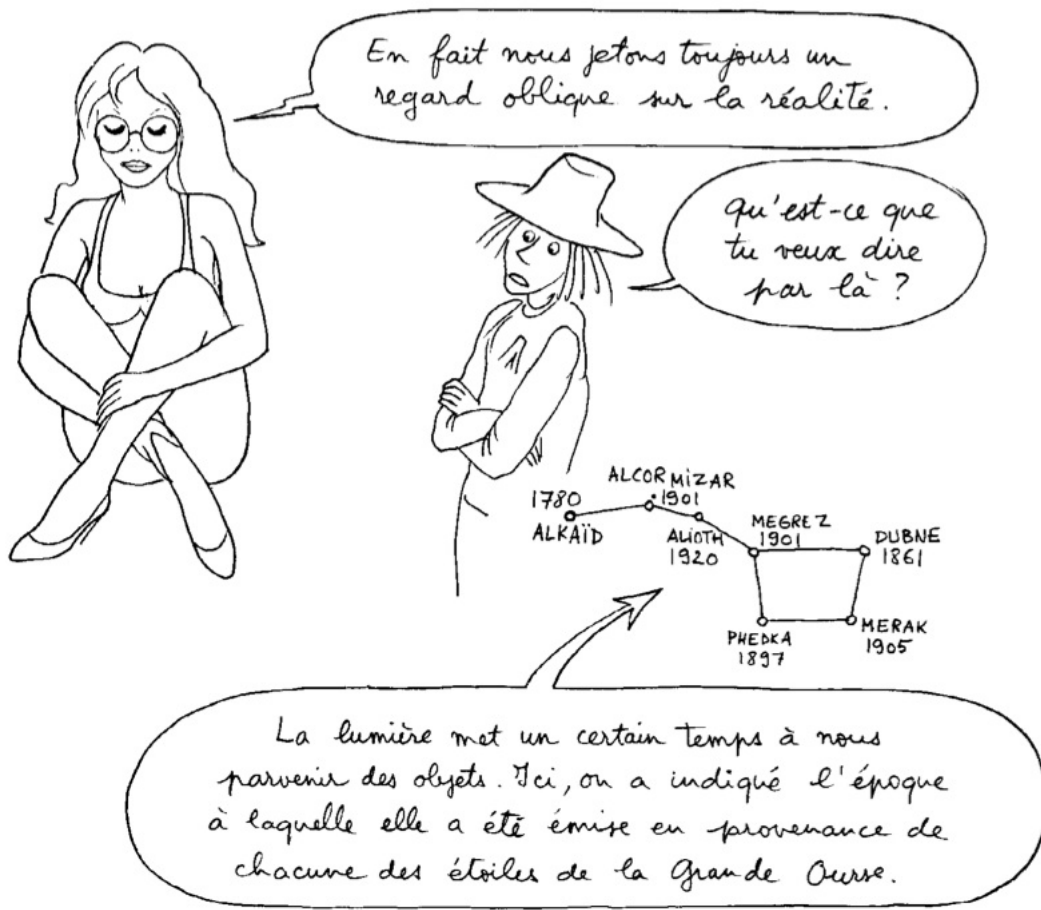 En fait nous jetons toujours un
regard oblique sur la réalité.
qu'est-ce que
tu veux dire
par là ?
ALCOR MIZAR
1901
1780
ALKAÏD
ALIOTH
1920
MEGREZ
1901
DUBNE
1861
PHEDKA
1897
MERAK
1905
La lumière met un certain temps à nous
parvenir des objets. Ici, on a indiqué l'époque
à laquelle elle a été émise en provenance de
chacune des étoiles de la Grande Ourse.